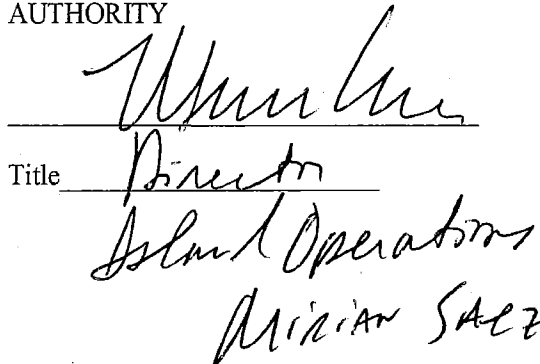 AUTHORITY
Title Director
Island Operations
MiRiAN SAEZ